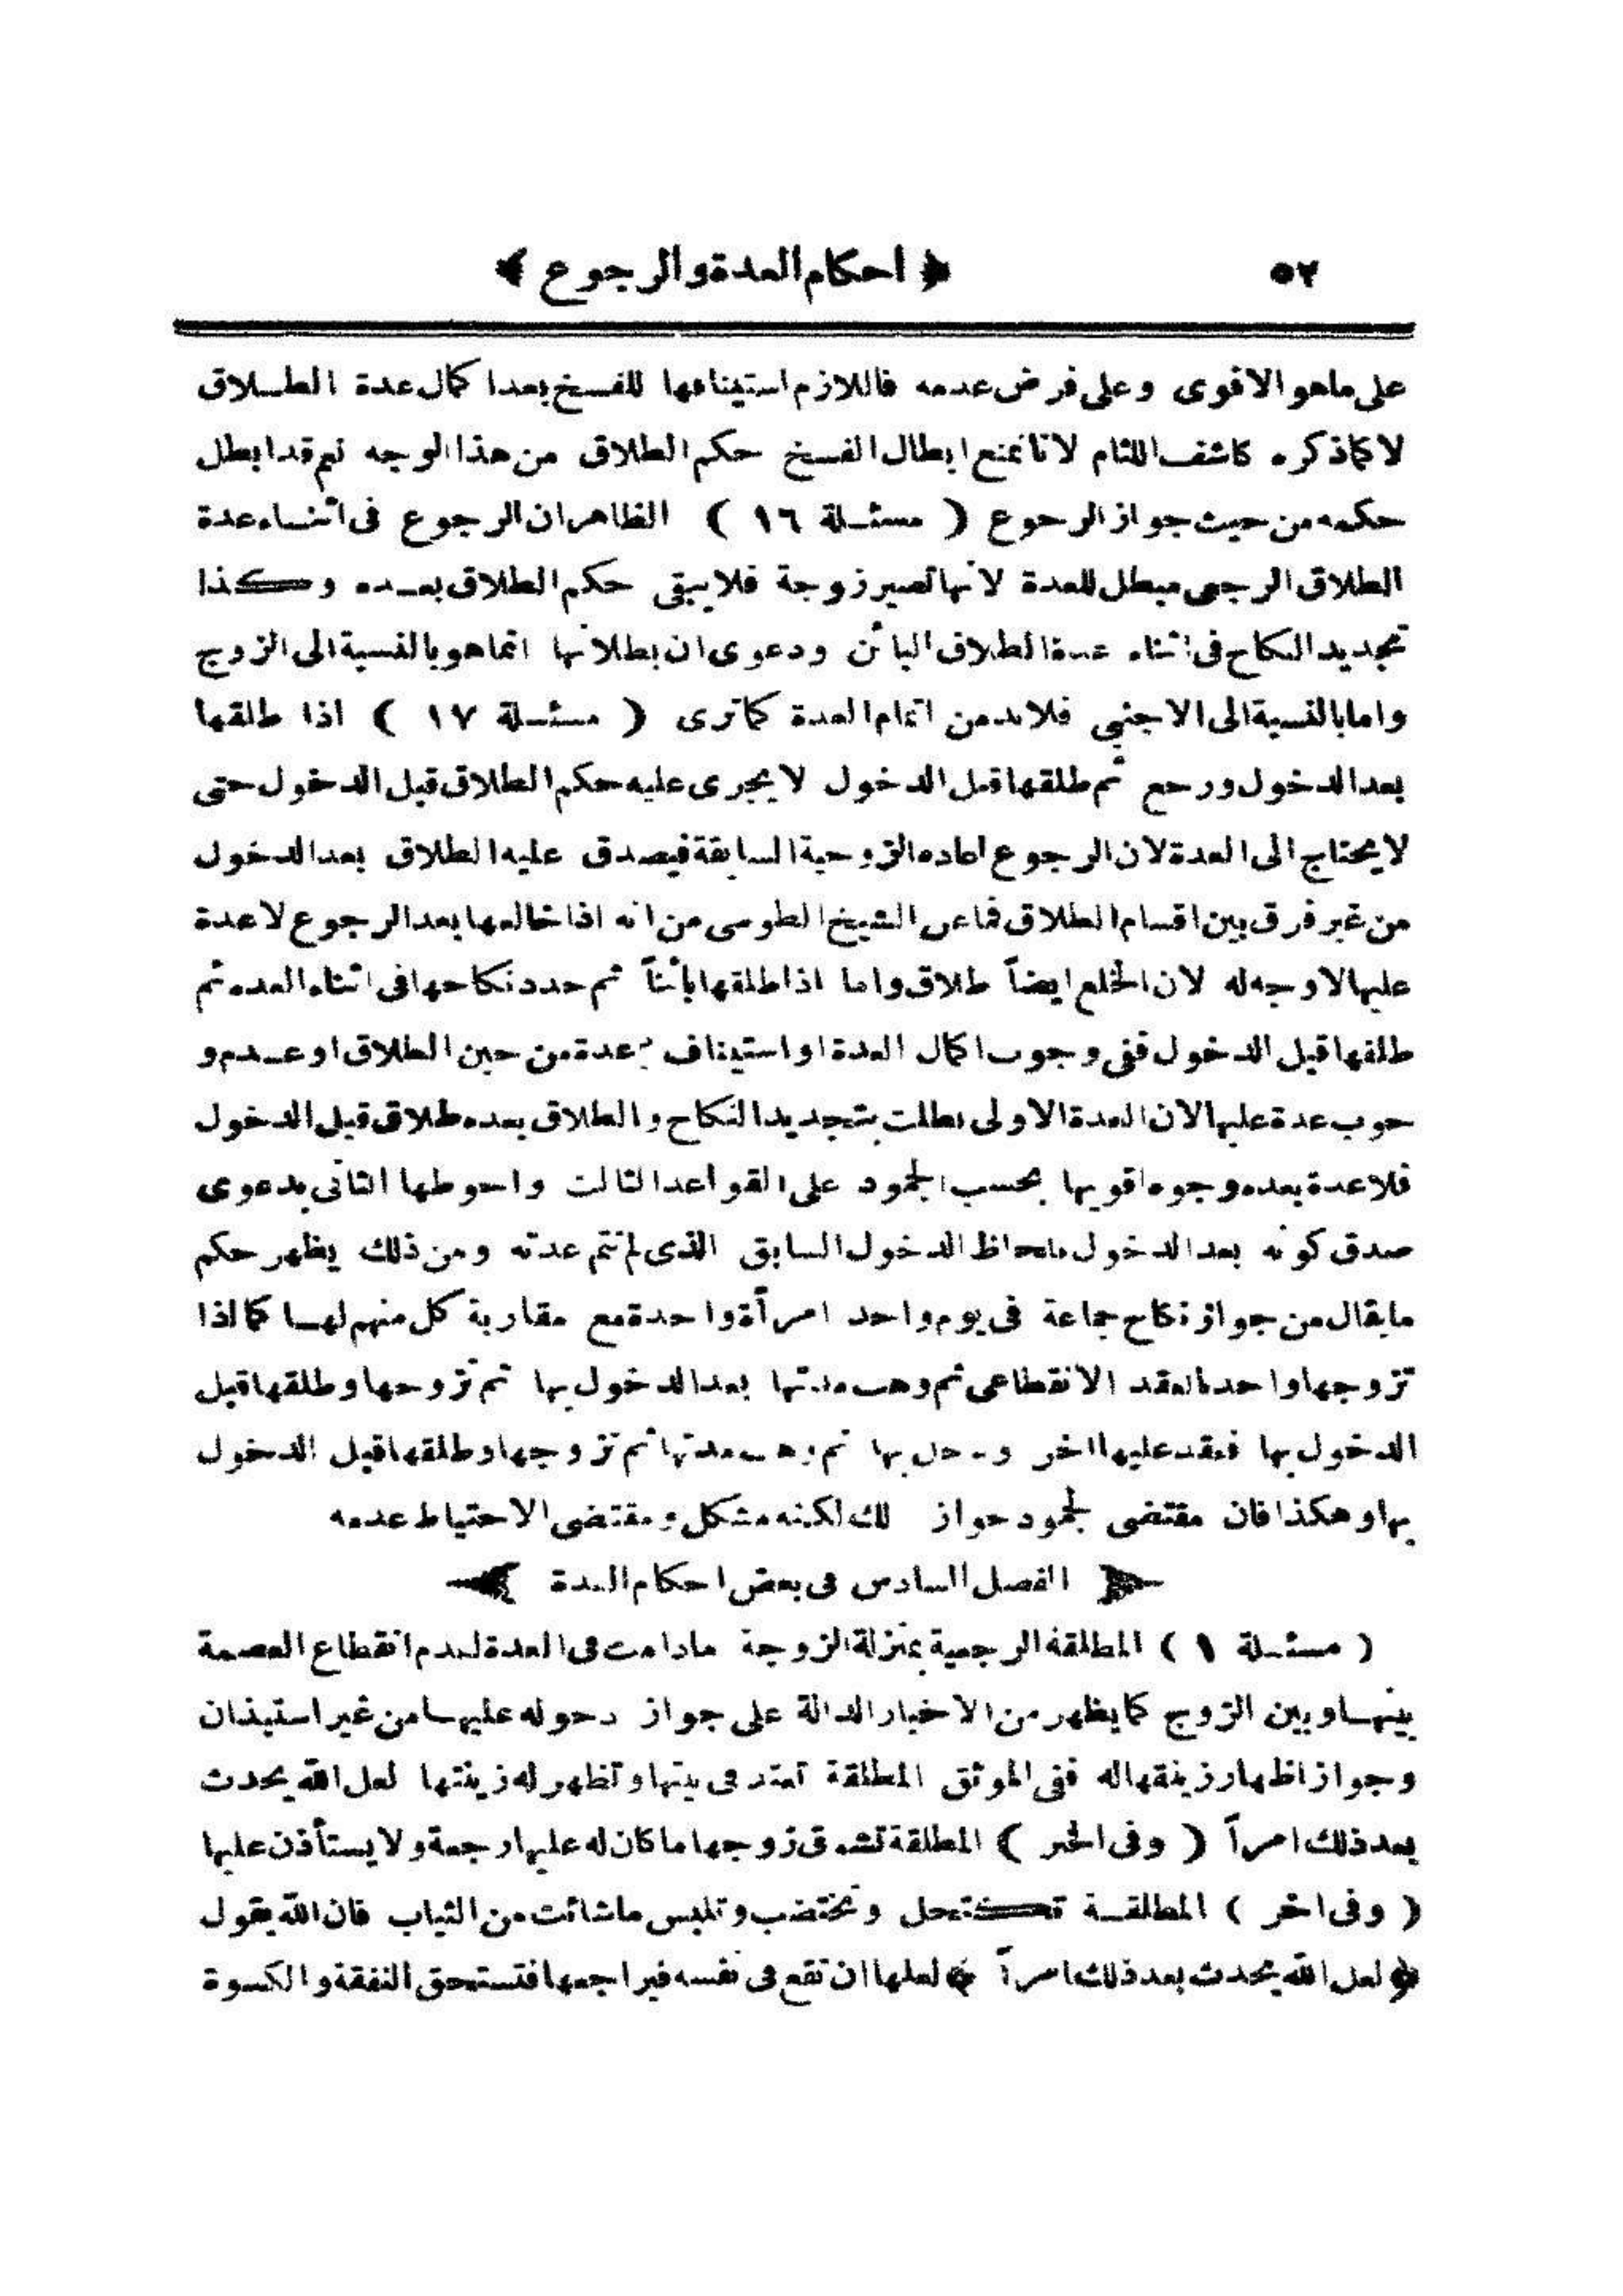 ٥٢ ﴿ احكام العدة والرجوع ﴾
على ماهو الاقوى وعلى فرض عدمه فاللازم استينافها للفسخ بعد اكمال عدة الطلاق
لا كما ذكره كاشف اللثام لانا نمنع ابطال الفسخ حكم الطلاق من هذا الوجه نعم قد ابطل
حكمه من حيث جواز الرجوع ( مسئلة ١٦ ) الظاهر ان الرجوع فى اثناء عدة
الطلاق الرجعى مبطل للعدة لانها تصير زوجة فلا يبقى حكم الطلاق بعده وكذا
تجديد النكاح فى اثناء عدة الطلاق البائن ودعوى ان بطلانها انما هو بالنسبة الى الزوج
واما بالنسبة الى الاجنبي فلابد من اتمام العدة كما ترى ( مسئلة ١٧ ) اذا طلقها
بعد الدخول ورجع ثم طلقها قبل الدخول لا يجرى عليه حكم الطلاق قبل الدخول حتى
لا يحتاج الى العدة لان الرجوع اعاده الزوجية السابقة فيصدق عليه الطلاق بعد الدخول
من غير فرق بين اقسام الطلاق فما عن الشيخ الطوسى من انه اذا خالعها بعد الرجوع لا عدة
عليها لا وجه له لان الخلع ايضاً طلاق واما اذا طلقها بائناً ثم جدد نكاحها فى اثناء العده ثم
طلقها قبل الدخول ففى وجوب اكمال العدة او استيناف عدة من حين الطلاق او عدم و
جوب عدة عليها لان العدة الاولى بطلت بتجديد النكاح والطلاق بعده طلاق قبل الدخول
فلا عدة بعده وجوه اقويها بحسب الجمود على القواعد الثالث واحوطها الثانى بدعوى
صدق كونه بعد الدخول بلحاظ الدخول السابق الذى لم تتم عدته ومن ذلك يظهر حكم
ما يقال من جواز نكاح جماعة فى يوم واحد امرأة واحدة مع مقاربة كل منهم لها كما اذا
تزوجها واحد بالعقد الانقطاعى ثم وهب مدتها بعد الدخول بها ثم تزوجها وطلقها قبل
الدخول بها فيعقد عليها اخر ودخل بها ثم وهب مدتها ثم تزوجها وطلقها قبل الدخول
بها وهكذا فان مقتضى الجمود جواز ذلك لكنه مشكل ومقتضى الاحتياط عدمه
﴿ الفصل السادس فى بعض احكام العدة ﴾
( مسئلة ١ ) المطلقة الرجعية بمنزلة الزوجة مادامت فى العدة لعدم انقطاع العصمة
بينها وبين الزوج كما يظهر من الاخبار الدالة على جواز دخوله عليها من غير استيذان
وجواز اظهار زينتها له ففى الموثق المطلقة تعتد فى بيتها وتظهر له زينتها لعل الله يحدث
بعد ذلك امراً ( وفى الخبر ) المطلقة تشوق زوجها ما كان له عليها رجعة ولا يستأذن عليها
( وفى اخر ) المطلقة تكتحل وتختضب وتلبس ماشائت من الثياب فان الله يقول
﴿ لعل الله يحدث بعد ذلك امراً ﴾ لعلها ان تقع فى نفسه فيراجعها فتستحق النفقة والكسوة